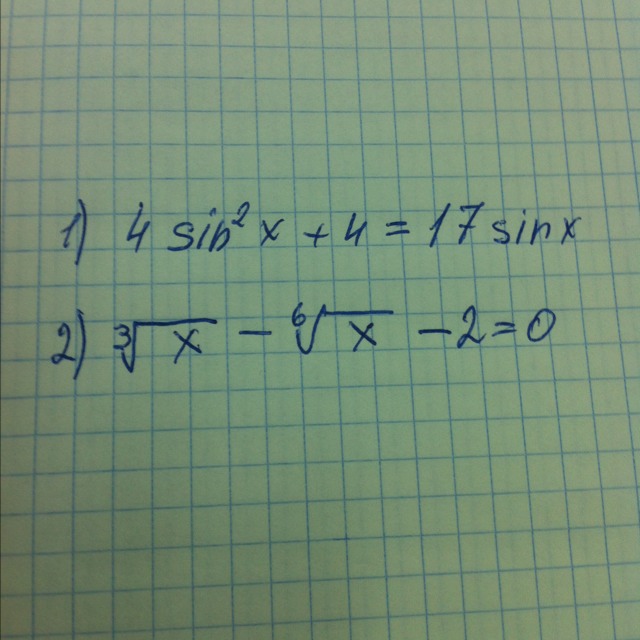 1) 4 sin² x + 4 = 17 sin x
2) ∛x − ⁶√x − 2 = 0